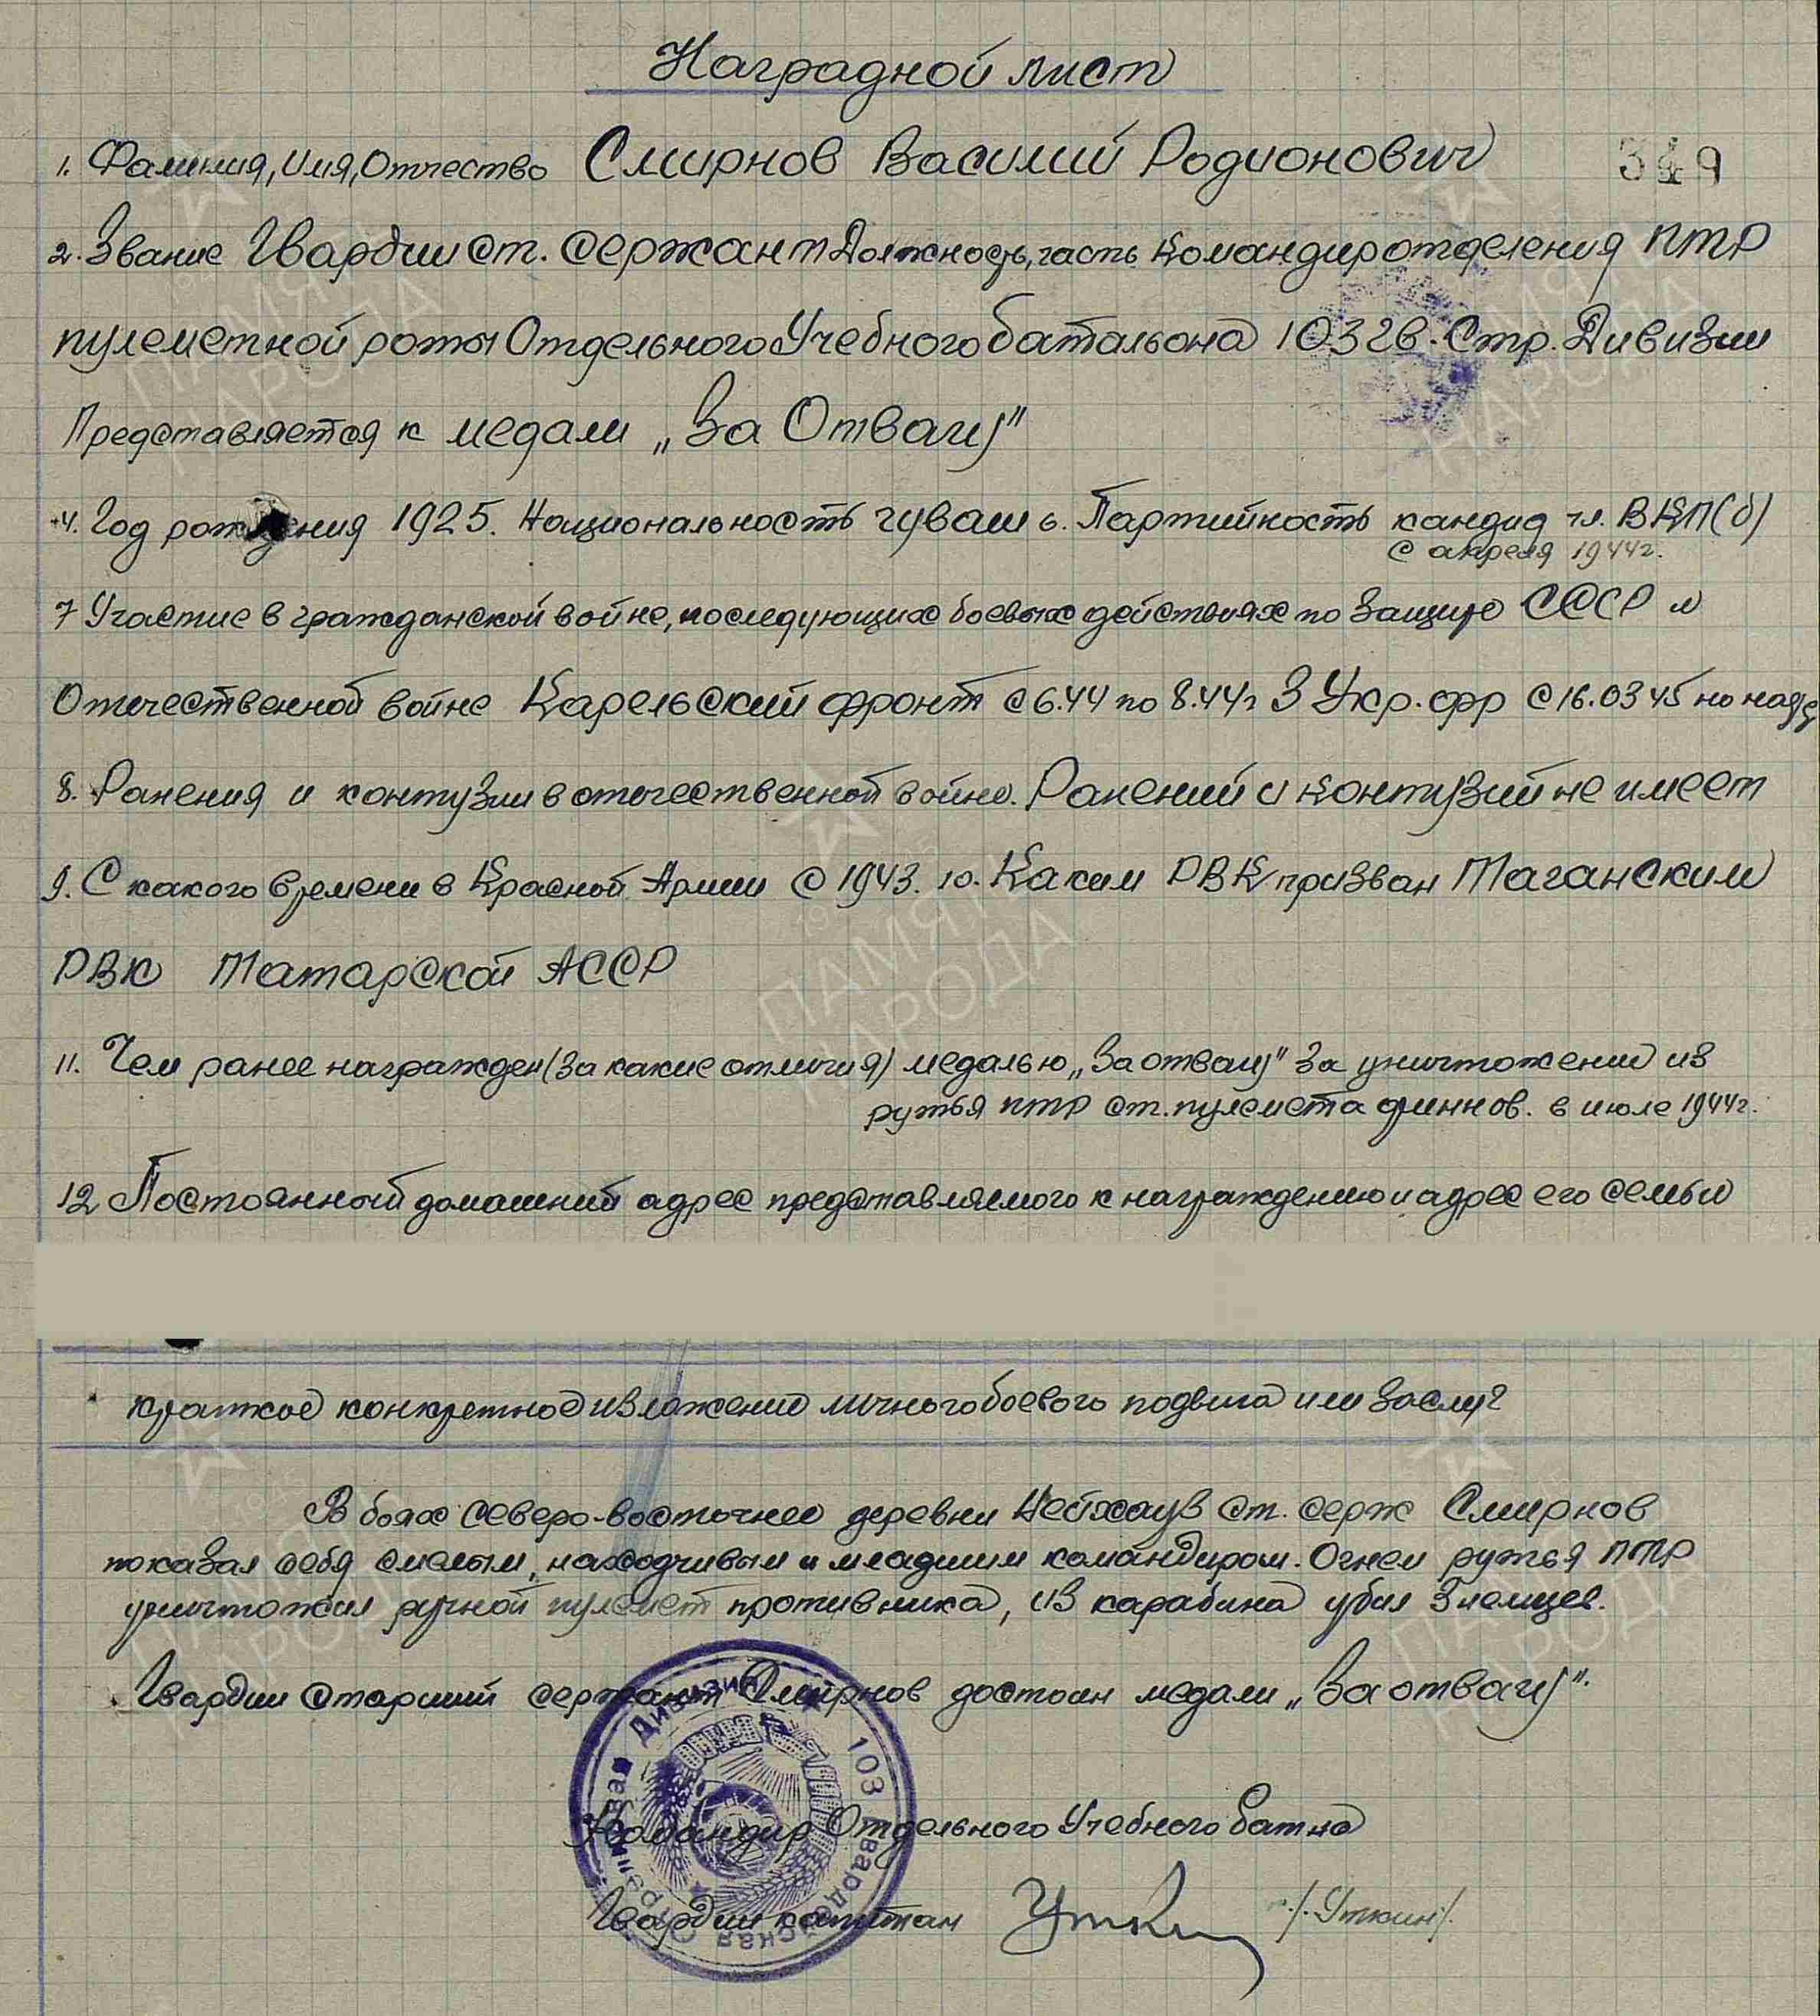 Наградной лист
1. Фамилия, Имя, Отчество Смирнов Василий Родионович
2. Звание Гвардии ст. сержант Должность, часть Командир отделения ПТР
пулеметной роты Отдельного Учебного батальона 103 гв. Стр. Дивизии
Представляется к медали „За Отвагу"
4. Год рождения 1925. Национальность чуваш 6. Партийность кандид чл. ВКП(б)
с апреля 1944г.
7 Участие в гражданской войне, последующих боевых действиях по защите СССР и
Отечественной войне Карельский фронт с 6.44 по 8.44г 3 Укр. фр с 16.03 45 по
8. Ранения и контузии в отечественной войне. Ранений и контузий не имеет
9. С какого времени в Красной Армии с 1943. 10. Каким РВК призван Таганским
РВК Татарской АССР
11. Чем ранее награжден (за какие отличия) медалью „За отвагу" за уничтожение из
ружья птр ст. пулемета финнов. в июле 1944г.
12 Постоянный домашний адрес представляемого к награждению и адрес его семьи
краткое конкретное изложение личного боевого подвига или заслуг
В боях северо-восточнее деревни Нейхауз ст. серж Смирнов
показал себя смелым, находчивым и младшим командиром. Огнем ружья ПТР
уничтожил ручной пулемет противника, из карабина убил 3 немцев.
Гвардии старший сержант Смирнов достоин медали „За отвагу".
Командир Отдельного Учебного батна
Гвардии капитан /Уткин/.
103 Гвардейская Стрелковая Дивизия
ПАМЯТЬ НАРОДА